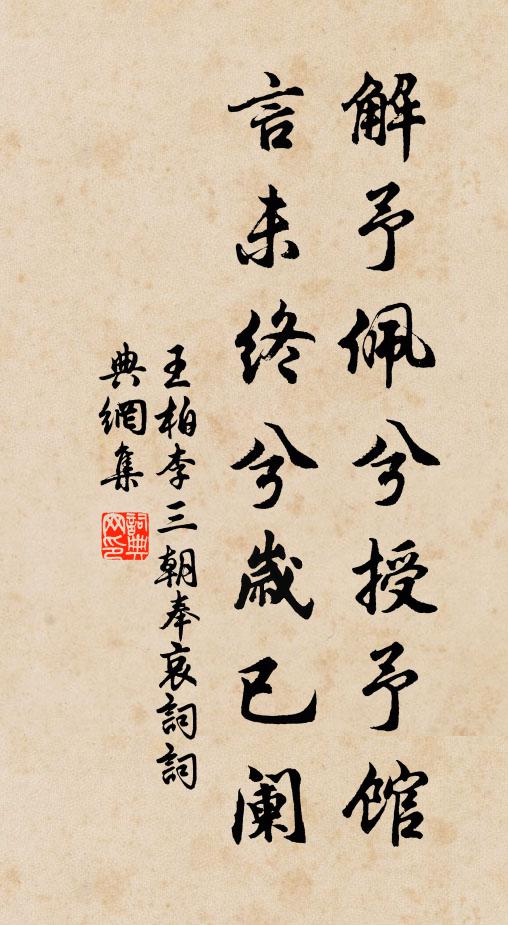 解予佩兮授予館
言未终兮歲已阑
王柏李三朝奉哀詞詞
典網集
詞典网印